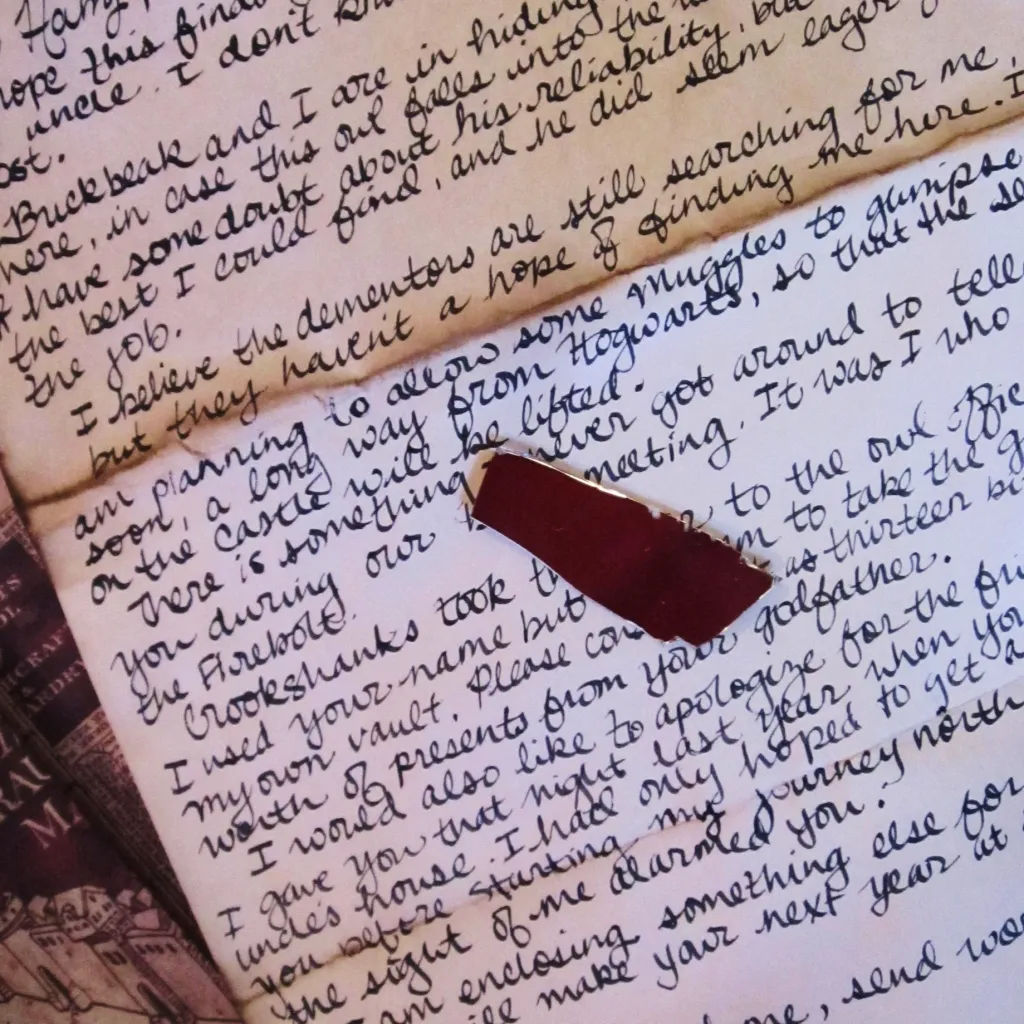 Harry,
hope this finds
uncle. I don't
ost.
Buckbeak and I are in hiding
here, in case this owl falls into the
I have some doubt about his reliability, but
the best I could find, and he did seem eager
the job.
I believe the dementors are still searching for me,
but they haven't a hope of finding me here. I
am planning to allow some muggles to glimpse
soon, a long way from Hogwarts, so that the se
on the castle will be lifted.
There is something never got around to tell
you during our meeting. It was I who
the Firebolt.
Crookshanks took to the owl offic
I used your name but m to take the g
my own vault. Please con as thirteen bi
worth of presents from your godfather.
I would also like to apologize for the fri
I gave you that night last year when you
uncle's house. I had only hoped to get a
you before starting my journey north
the sight of me alarmed you.
am enclosing something else for
ill make your next year at
me, send wor
CRAFT
RAU
MA